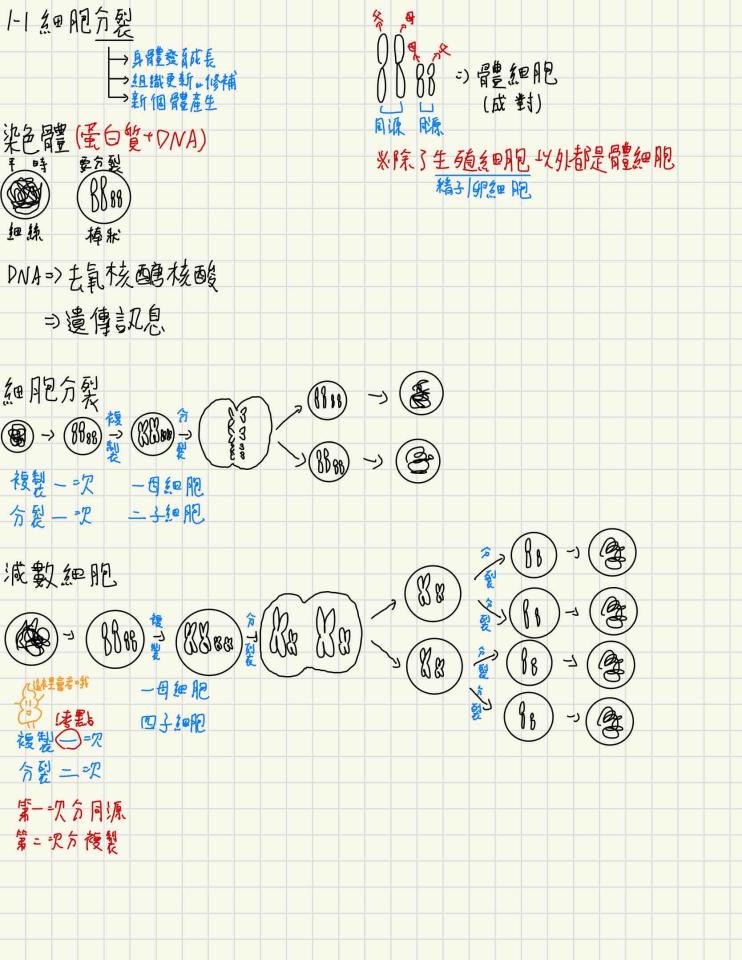 1-1 細胞分裂
→身體發育成長
→組織更新、修補
→新個體產生
父 母
母 父
同源 同源
⇒體細胞
(成對)
※除了生殖細胞以外都是體細胞
精子/卵細胞
染色體(蛋白質+DNA)
平時 要分裂
細絲 棒狀
DNA⇒去氧核醣核酸
⇒遺傳訊息
細胞分裂
複製 分裂
複製一次 一母細胞
分裂一次 二子細胞
減數細胞
複製 分裂 分裂 分裂 分裂 分裂
這裡會考哦
一母細胞
考點
四子細胞
複製一次
分裂二次
第一次分同源
第二次分複製